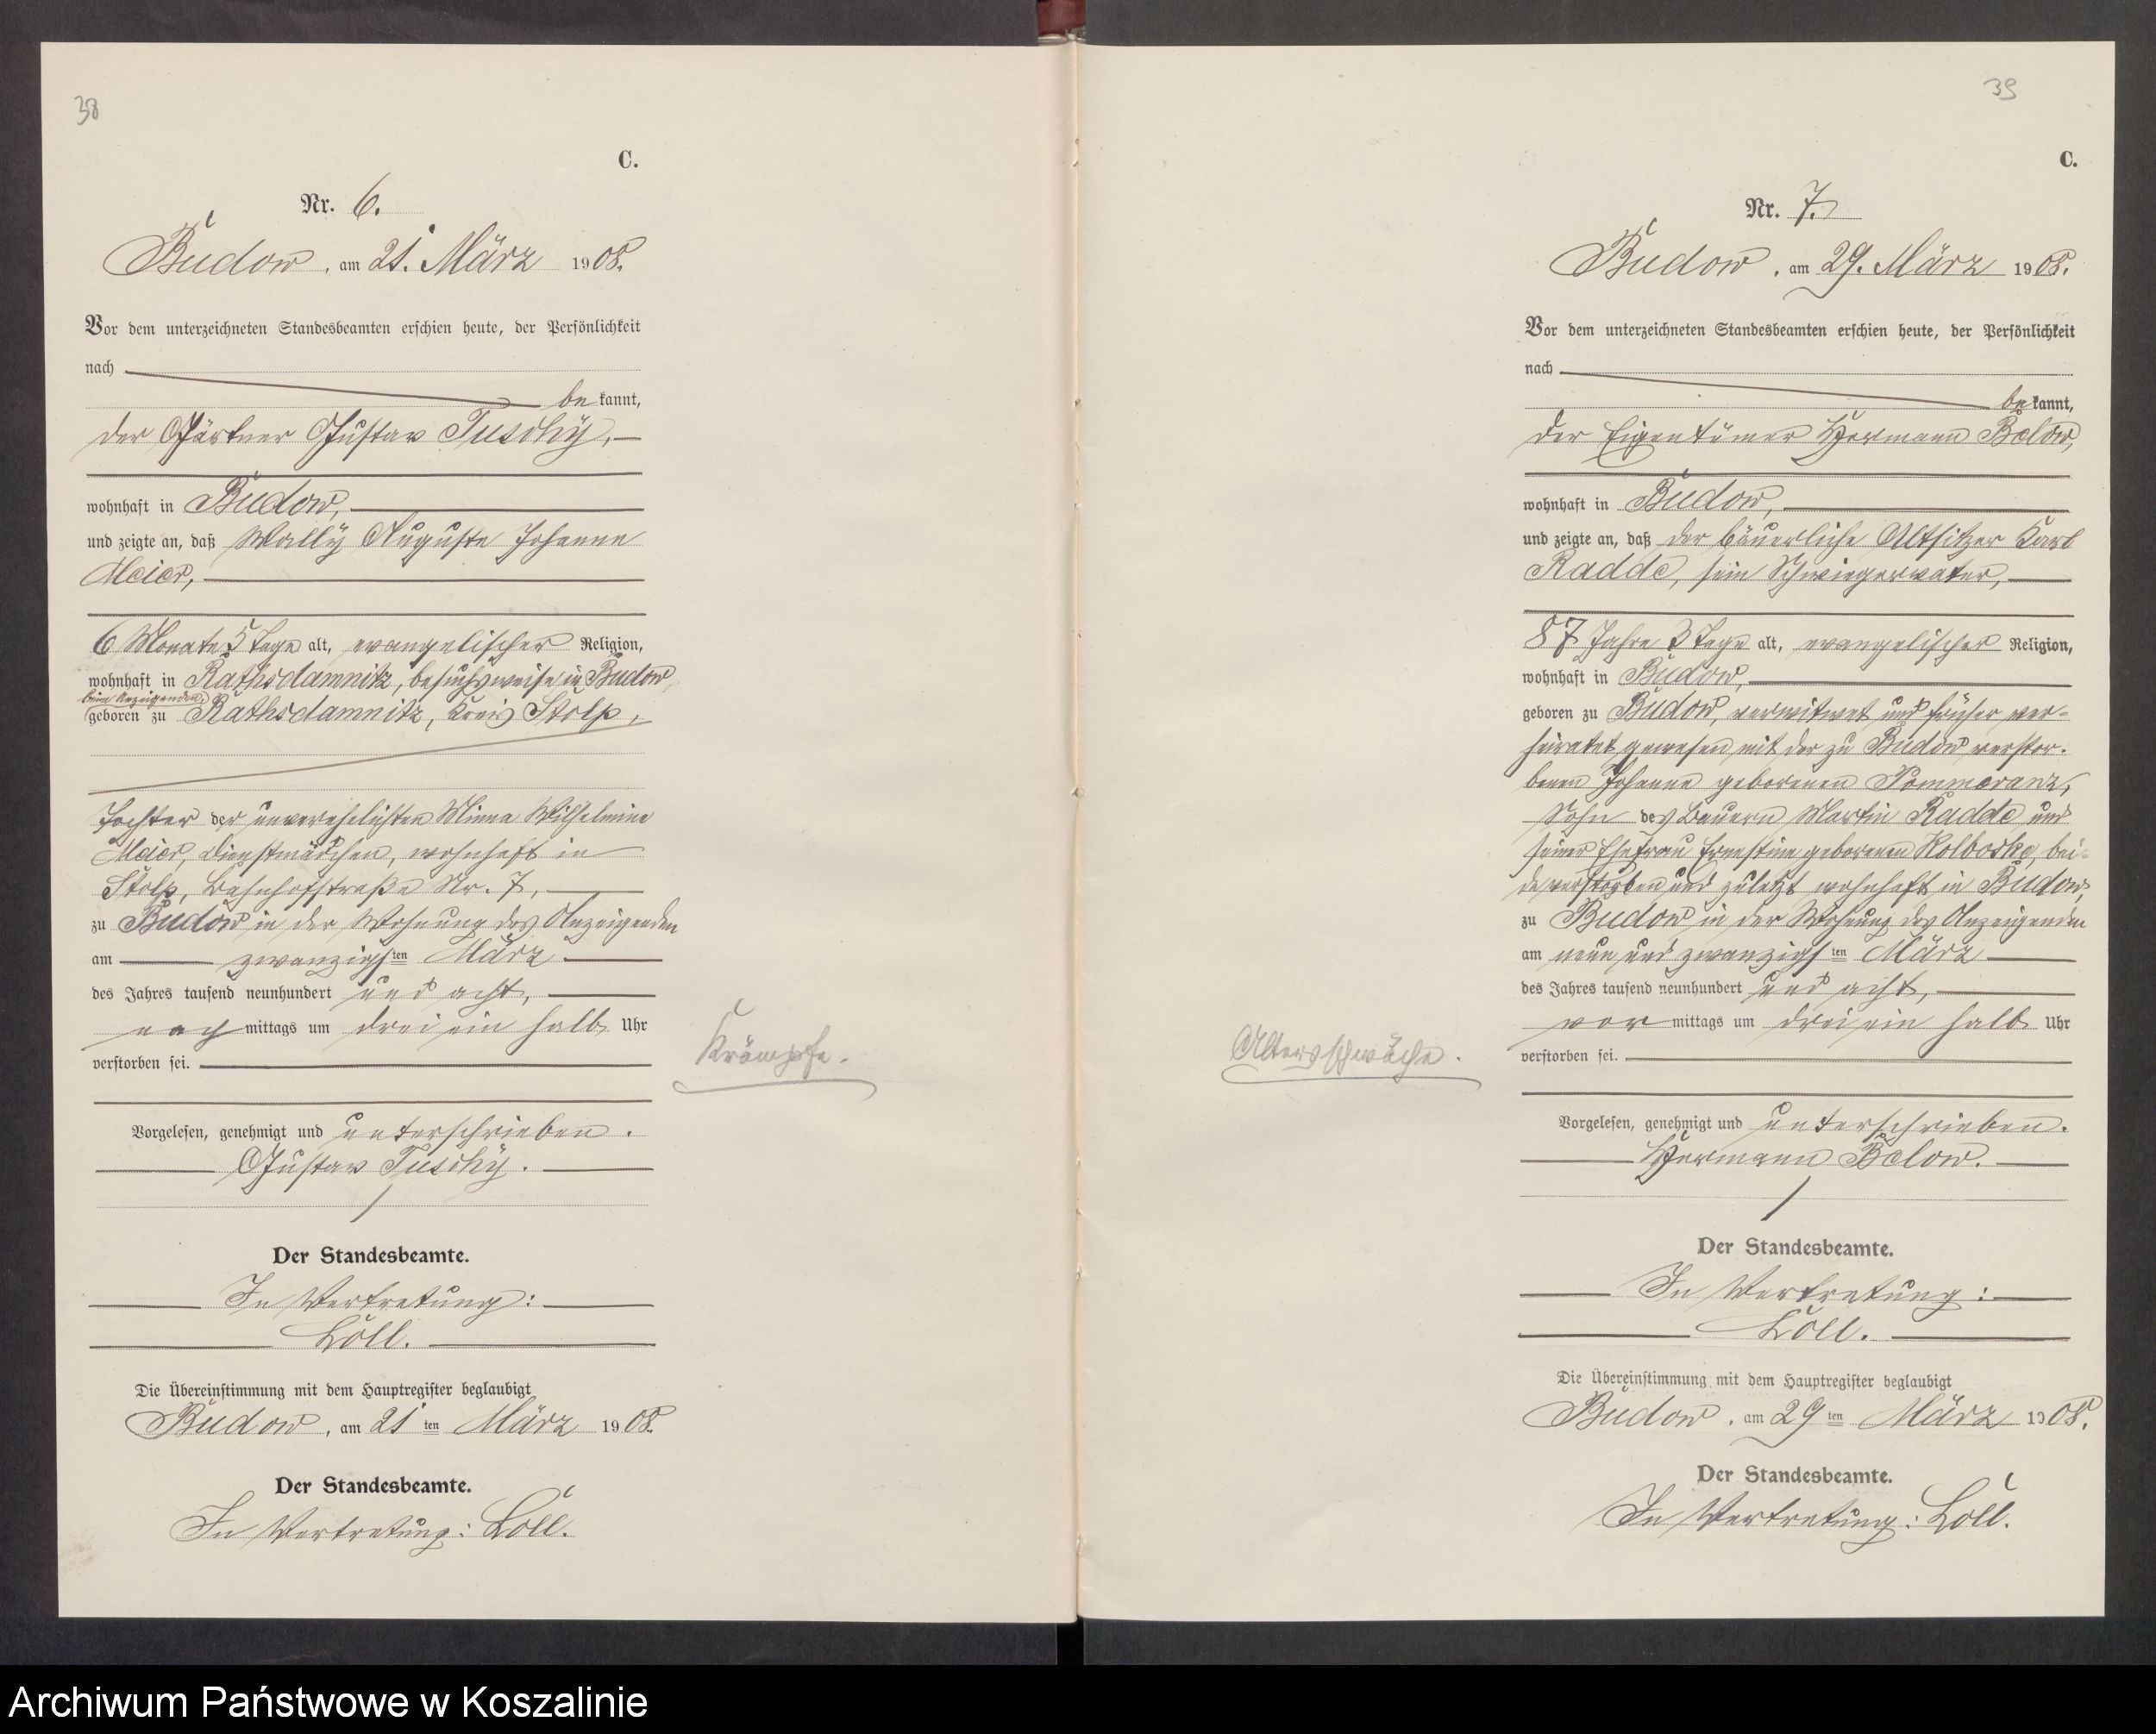 38
C.
Nr. 6.
Budow, am 21. März 1908.
Vor dem unterzeichneten Standesbeamten erschien heute, der Persönlichkeit
nach
be kannt,
der Gärtner Gustav Tuschy,
wohnhaft in Budow,
und zeigte an, daß Wally Auguste Johanne
Meier,
6 Monate 5 Tage alt, evangelischer Religion,
wohnhaft in Rathsdamnitz, besuchsweise in Budow
beim Anzeigenden,
geboren zu Rathsdamnitz, Kreis Stolp,
Tochter der unverehelichten Minna Wilhelmine
Meier, Dienstmädchen, wohnhaft in
Stolp, Bahnhofstraße Nr. 7,
zu Budow in der Wohnung des Anzeigenden
am zwanzigsten März
des Jahres tausend neunhundert und acht,
nach mittags um drei ein halb Uhr
verstorben sei.
Krämpfe.
Vorgelesen, genehmigt und unterschrieben.
Gustav Tuschy.
Der Standesbeamte.
In Vertretung:
Löll.
Die Übereinstimmung mit dem Hauptregister beglaubigt
Budow, am 21 ten März 1908.
Der Standesbeamte.
In Vertretung: Löll.
39
C.
Nr. 7.
Budow, am 29. März 1908.
Vor dem unterzeichneten Standesbeamten erschien heute, der Persönlichkeit
nach
be kannt,
der Eigentümer Hermann Below,
wohnhaft in Budow,
und zeigte an, daß der bäuerliche Altsitzer Karl
Radde, sein Schwiegervater,
87 Jahre 3 Tage alt, evangelischer Religion,
wohnhaft in Budow,
geboren zu Budow, verwitwet und früher ver-
heiratet gewesen mit der zu Budow verstor-
benen Johanne geborenen Pommeranz,
Sohn des Bauern Martin Radde und
seiner Ehefrau Ernestine geborenen Kolboske, bei-
de verstorben und zuletzt wohnhaft in Budow,
zu Budow in der Wohnung des Anzeigenden
am neun und zwanzigsten März
des Jahres tausend neunhundert und acht,
vor mittags um drei ein halb Uhr
verstorben sei.
Altersschwäche.
Vorgelesen, genehmigt und unterschrieben.
Hermann Below.
Der Standesbeamte.
In Vertretung:
Löll.
Die Übereinstimmung mit dem Hauptregister beglaubigt
Budow, am 29 ten März 1908.
Der Standesbeamte.
In Vertretung: Löll.
Archiwum Państwowe w Koszalinie